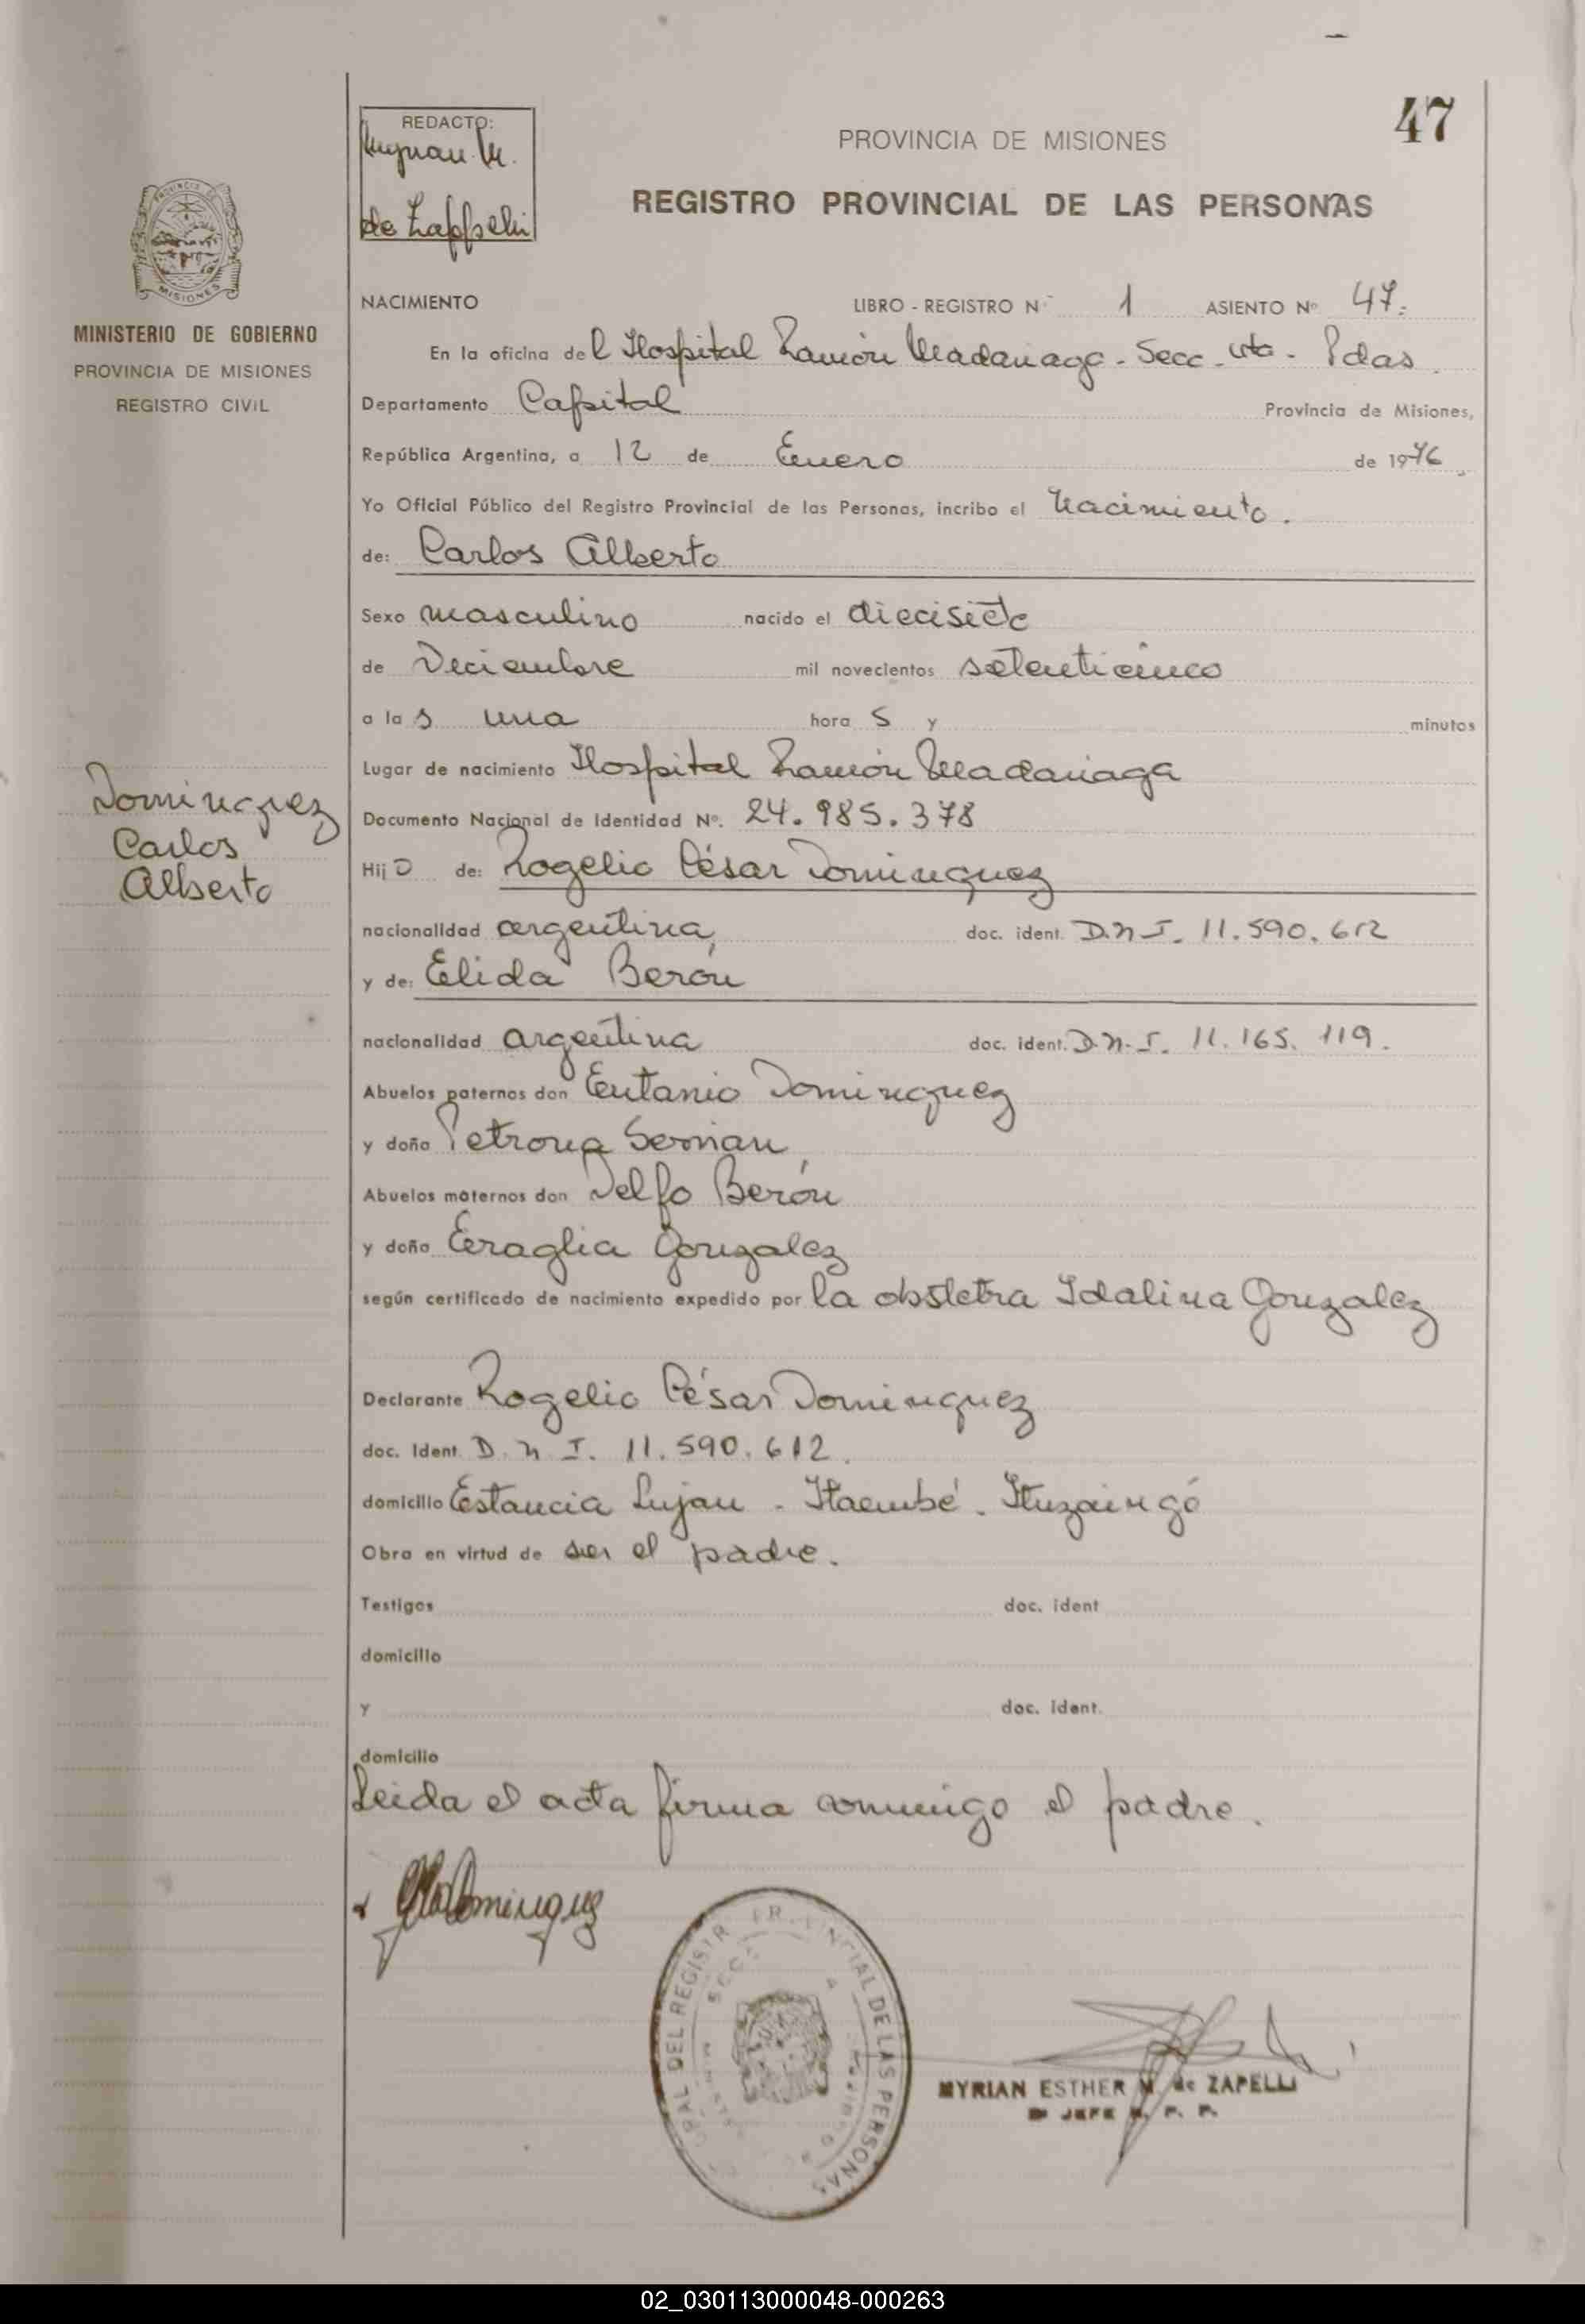 47
REDACTO:
de Zappelli
PROVINCIA DE MISIONES
REGISTRO PROVINCIAL DE LAS PERSONAS
MISIONES
MINISTERIO DE GOBIERNO
PROVINCIA DE MISIONES
REGISTRO CIVIL
NACIMIENTO LIBRO - REGISTRO N° 1 ASIENTO N° 47.
En la oficina del Hospital Ramón Madariaga - Secc. - Pdas.
Departamento Capital Provincia de Misiones,
República Argentina, a 12 de Enero de 1976
Yo Oficial Público del Registro Provincial de las Personas, incribo el nacimiento.
de: Carlos Alberto
Sexo masculino nacido el diecisiete
de Diciembre mil novecientos setenticinco
a las una hora s y minutos
Lugar de nacimiento Hospital Ramón Madariaga
Dominguez
Carlos
Alberto
Documento Nacional de Identidad N°. 24.985.378
Hijo de: Rogelio César Dominguez
nacionalidad argentina, doc. ident. D.N.I. 11.590.612
y de: Elida Berón
nacionalidad argentina doc. ident. D.N.I. 11.165.119.
Abuelos paternos don Eutanio Dominguez
y doña Petrona
Abuelos maternos don Delfo Berón
y doña Eraglia Gonzalez
según certificado de nacimiento expedido por la obstetra Idalina Gonzalez
Declarante Rogelio César Dominguez
doc. Ident. D.N.I. 11.590.612.
domicilio Estancia Lujan - Itaembé - Ituzaingó
Obra en virtud de ser el padre.
Testigos doc. ident
domicilio
y doc. ident.
domicilio
Leida el acta firma conmigo el padre.
Dominguez
DEL REGISTR DE LAS PERSONAS
MYRIAN ESTHER M. de ZAPELLI
JEFE R. P. P.
02_030113000048-000263